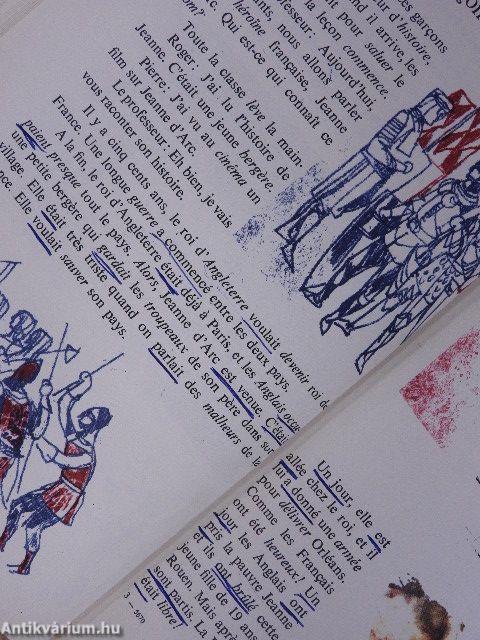 s garçons
nd il arrive, les
r d'histoire,
ait pour saluer le
la leçon commence.
fesseur. Aujourd'hui,
nous allons parler
héroïne française, Jeanne
Qui est-ce qui connaît ce
nom?
Toute la classe lève la main.
Roger. J'ai lu l'histoire de
Jeanne. C'était une jeune bergère.
Pierre. J'ai vu au cinéma un
film sur Jeanne d'Arc.
Le professeur. Eh bien, je vais
vous raconter son histoire.
Il y a cinq cents ans, le roi d'Angleterre voulait devenir roi de
France. Une longue guerre a commencé entre les deux pays.
A la fin, le roi d'Angleterre était déjà à Paris, et les Anglais occu-
paient presque tout le pays. Alors, Jeanne d'Arc est venue. C'était
une petite bergère qui gardait les troupeaux de son père dans
village. Elle était très triste quand on parlait des malheurs de la
nce. Elle voulait sauver son pays.
Un jour, elle est
allée chez le roi et il
lui a donné une armée
pour délivrer Orléans.
Comme les Français
ont été heureux! Un
jour les Anglais ont
pris la pauvre Jeanne
et ils ont brûlé cette
jeune fille de 19 ans
Rouen. Mais aprè
sont partis. La
était libre!
3 – 5070
Antikvárium.hu